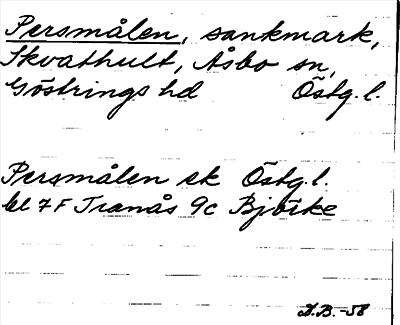 Persmålen, sankmark,
Skvathult, Åsbo sn,
Göstrings hd Östg. l.
Persmålen ek Östg. l.
bl 7F Tranås 9c Bjövike
D.B. -58